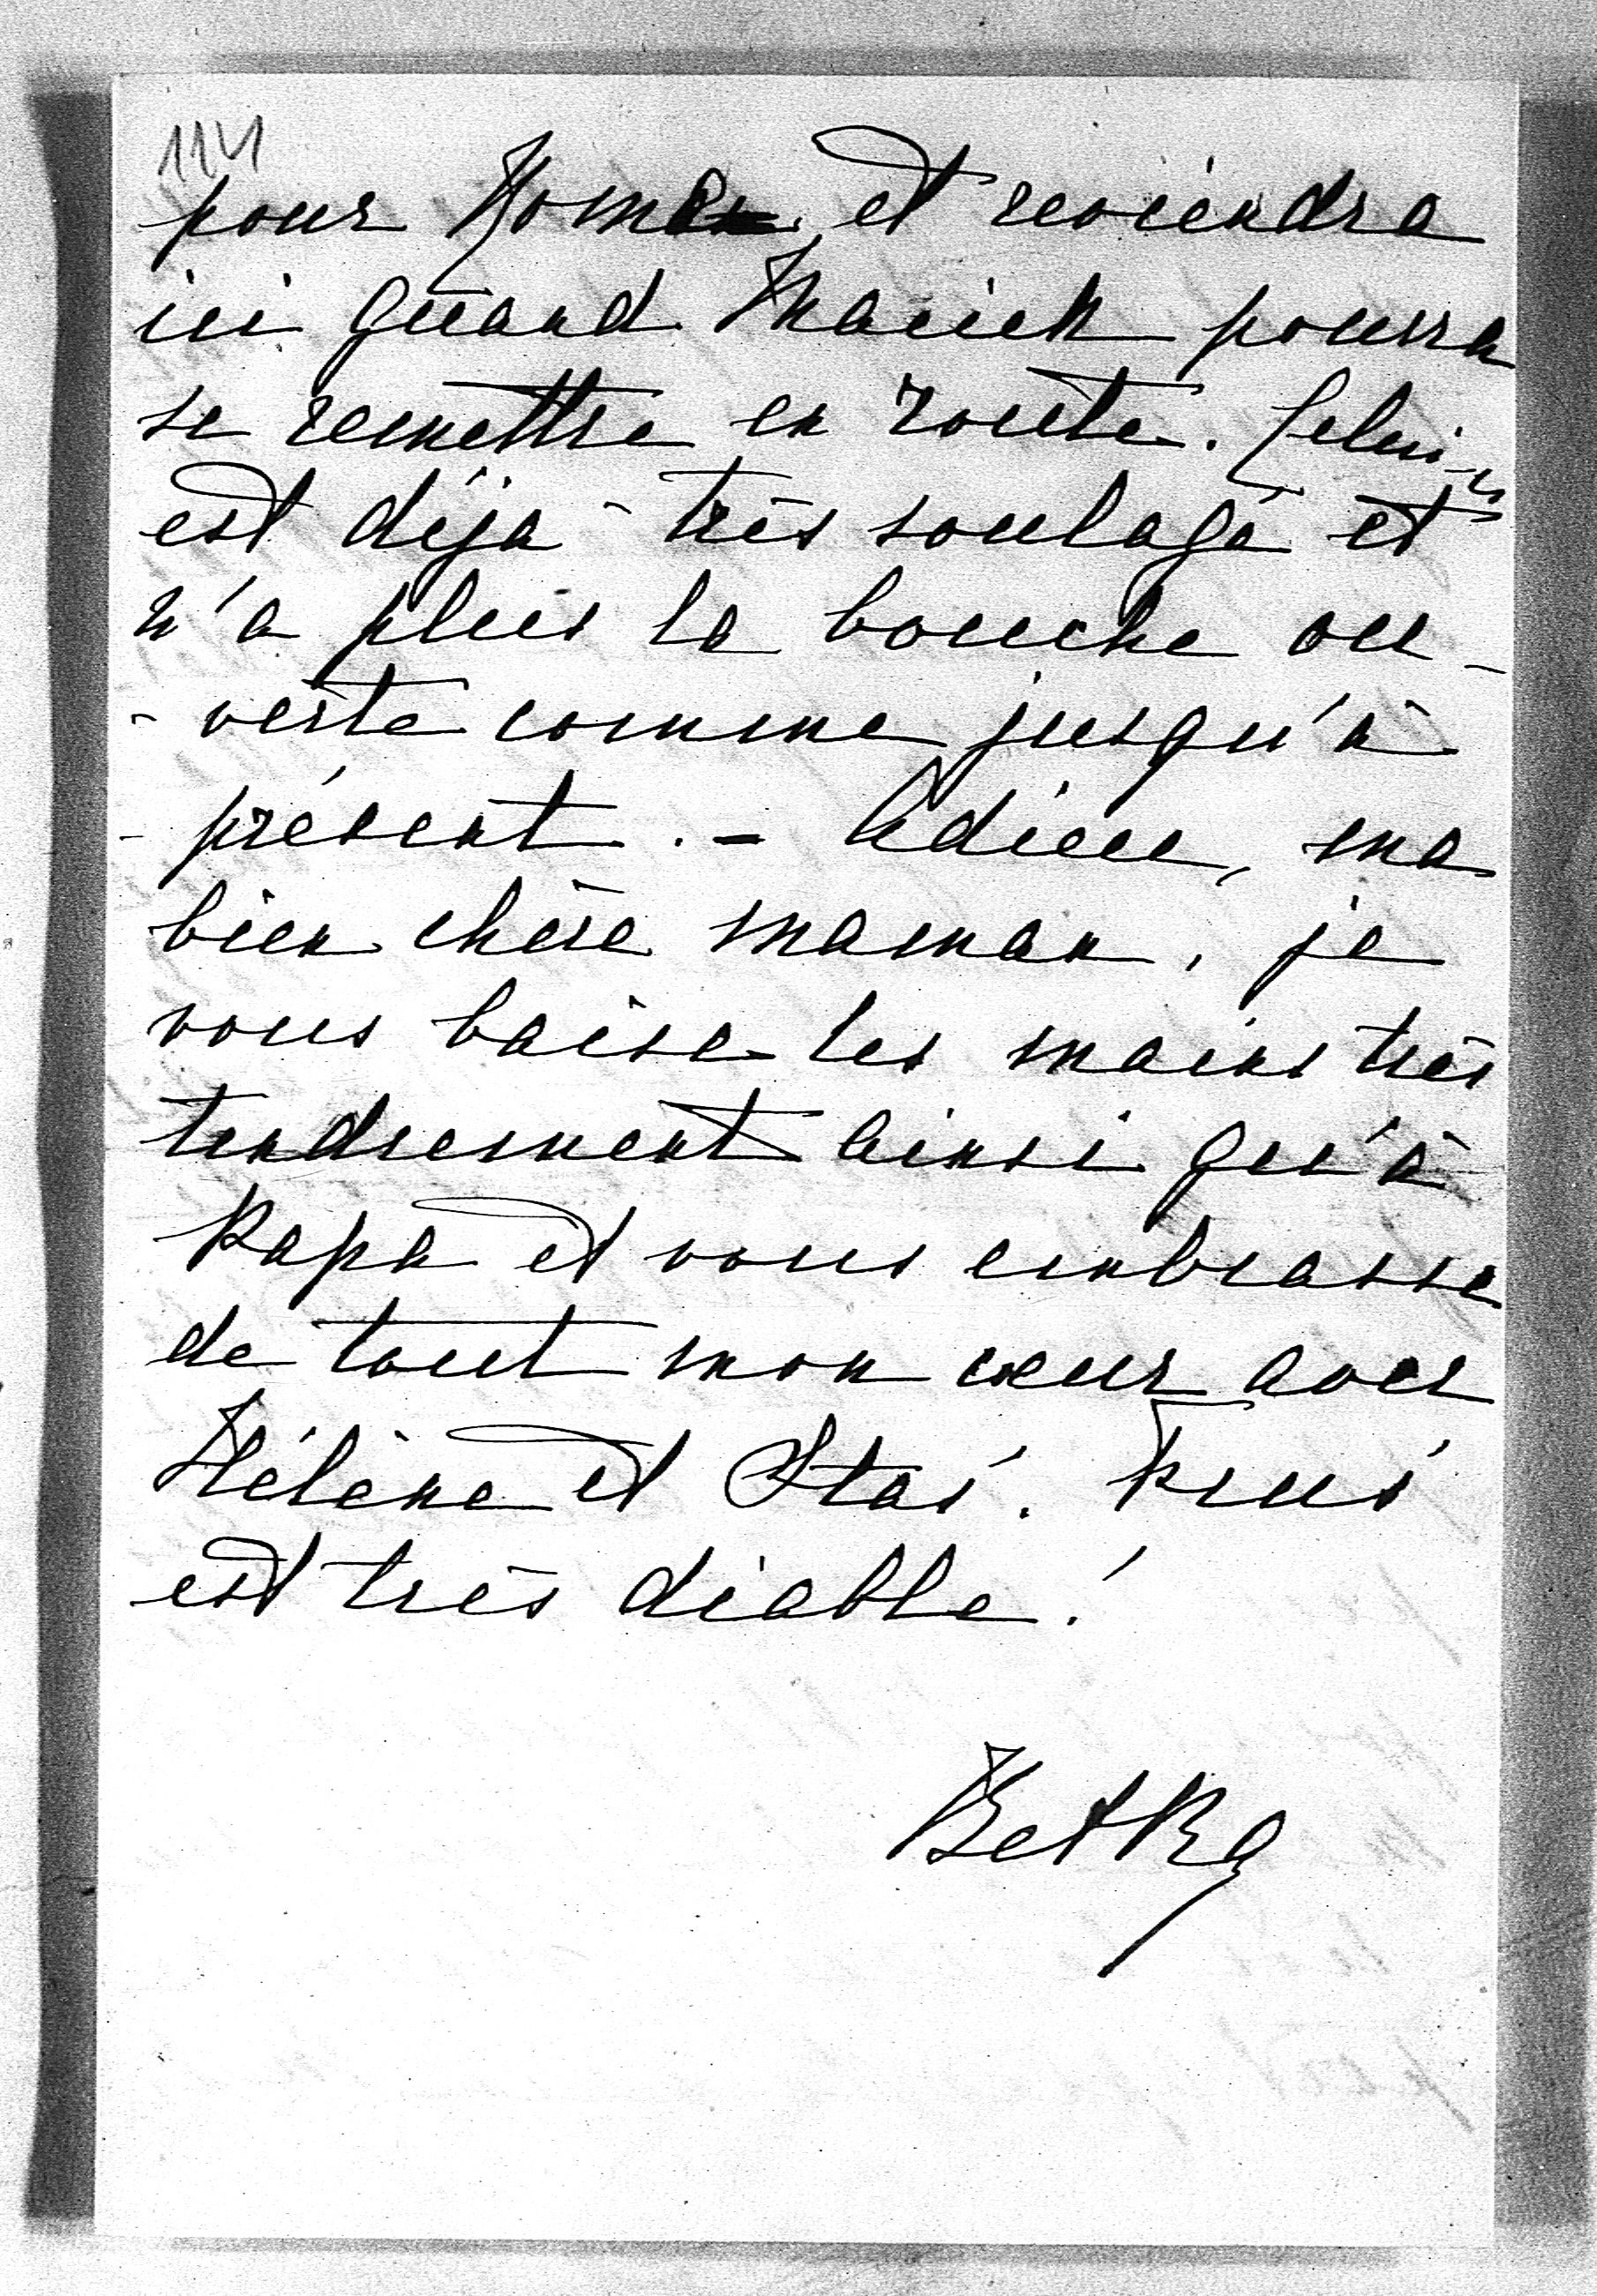 114
pour Rome et reviendra
ici quand Maciek pourra
se remettre en route. Celui-ci
est déjà très soulagé et
n'a plus la bouche ou-
- verte comme jusqu'à
- présent. - Adieu, ma
bien chère maman, je
vous baise les mains très
tendrement ainsi qu'à
Papa et vous embrasse
de tout mon cœur avec
Hélène et Staś.
est très diable!
Betka